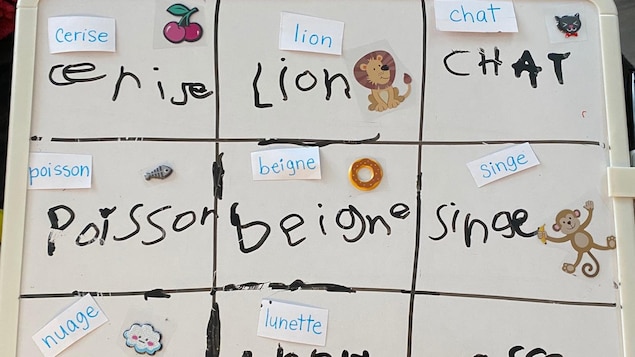 cerise
lion
chat
cerise
Lion
CHAT
poisson
beigne
singe
Poisson
beigne
singe
nuage
lunette